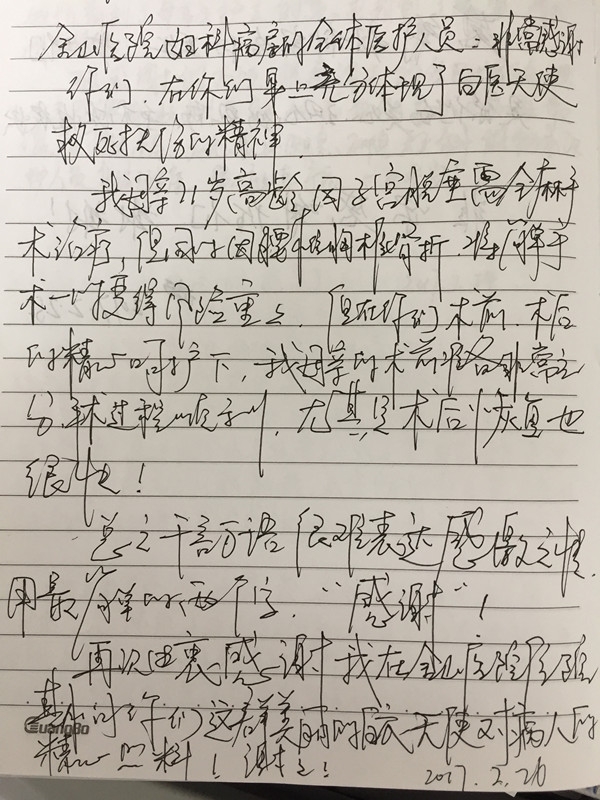 金山医院妇科病房的全体医护人员：非常感谢
你们，在你们身上充分体现了白医天使
救死扶伤的精神。
我母亲71岁高龄，因子宫脱垂需全麻手
术治疗，但同时因腰椎胸椎骨折，将简单手
术一时变得风险重重，但在你们术前、术后
的精心呵护下，我母亲的术前准备非常充
分，手术过程顺利，尤其是术后恢复也
很快！
总之千言万语很难表达感激之情，
用最简单的两个字，“感谢”！
再次由衷感谢我在金山医院住院
期间你们这群美丽的白衣天使对病人的
精心照料！谢谢！
GuangBo
2017.2.20